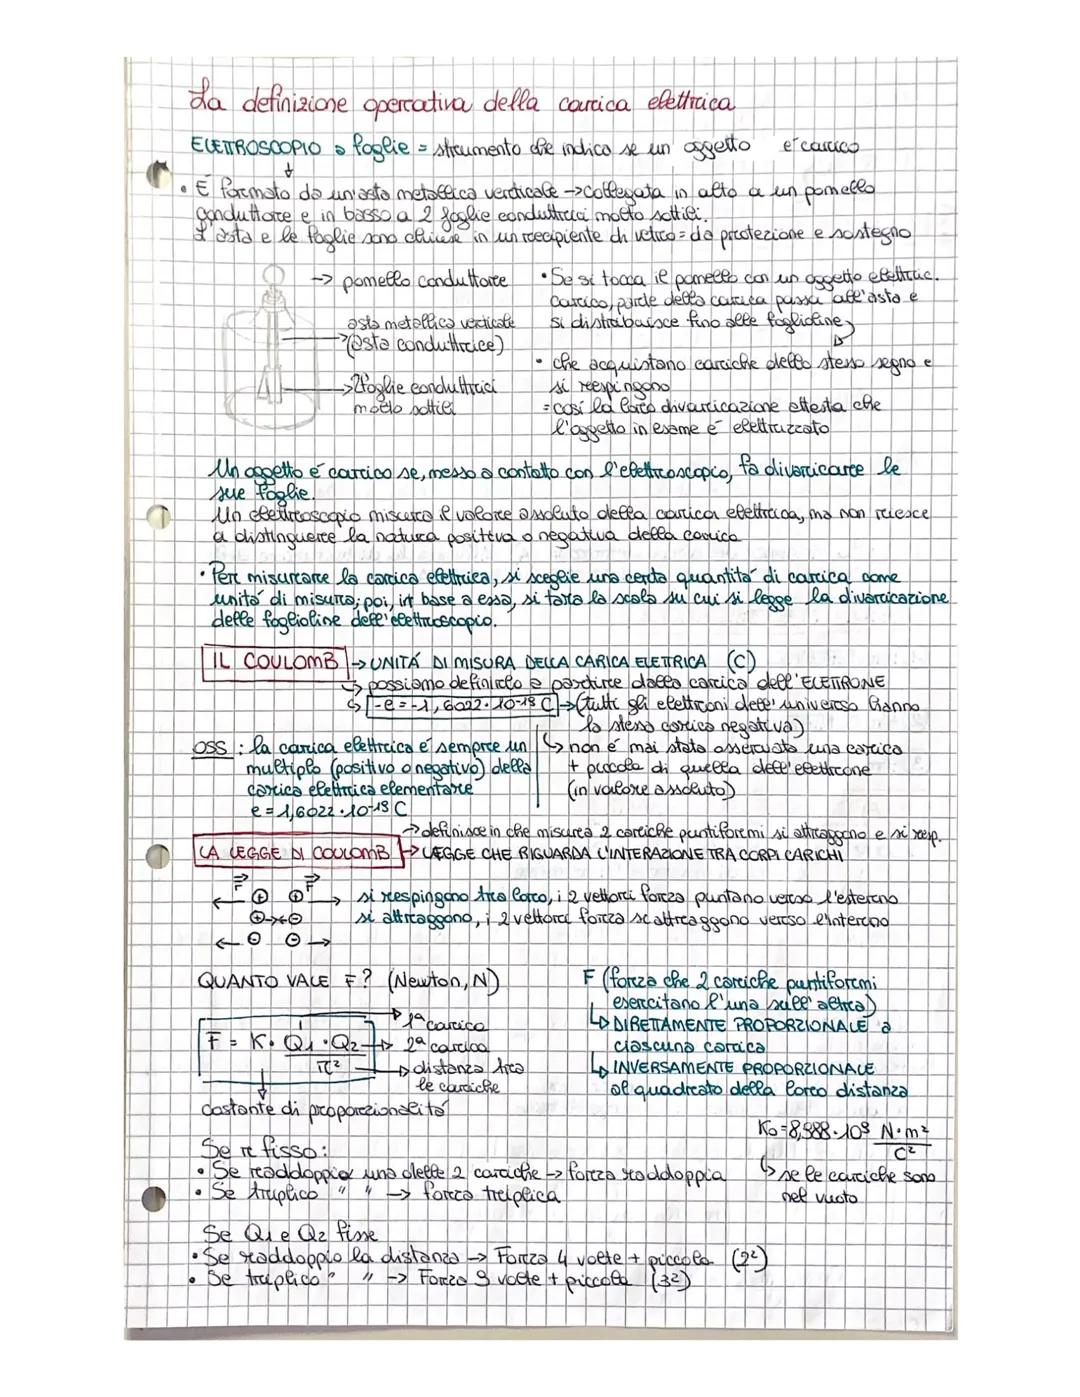 La definizione operativa della carica elettrica
ELETTROSCOPIO a foglie = strumento che indica se un oggetto é carico
• É formato da un'asta metallica verticale → collegata in alto a un pomello
conduttore e in basso a 2 foglie conduttrici molto sottili.
L'asta e le foglie sono chiuse in un recipiente di vetro = da protezione e sostegno
→ pomello conduttore
asta metallica verticale
(asta conduttrice)
→ 2 foglie conduttrici
molto sottili
• Se si tocca il pomello con un oggetto elettric.
carico, parte della carica passa all'asta e
si distribuisce fino alle foglioline
• che acquistano cariche dello stesso segno e
si respingono
= cosí la loro divaricazione attesta che
l'oggetto in esame é elettrizzato
Un oggetto é carico se, messo a contatto con l'elettroscopio, fa divaricare le
sue foglie.
Un elettroscopio misura il valore assoluto della carica elettrica, ma non riesce
a distinguere la natura positiva o negativa della carica
• Per misurare la carica elettrica, si sceglie una certa quantitá di carica come
unitá di misura; poi, in base a essa, si tara la scala su cui si legge la divaricazione
delle foglioline dell'elettroscopio.
IL COULOMB → UNITÁ DI MISURA DELLA CARICA ELETRICA (C)
↳ possiamo definirlo a partire dalla carica dell'ELETRONE
↳ -e = -1,6022·10-19 C → (tutti gli elettroni dell'universo hanno
la stessa carica negativa)
↳ non é mai stata osservata una carica
+ piccola di quella dell'elettrone
(in valore assoluto)
OSS : la carica elettrica é sempre un
multiplo (positivo o negativo) della
carica elettrica elementare
e = 1,6022·10-19 C
→ definisce in che misura 2 cariche puntiformi si attraggono e si resp.
LA LEGGE DI COULOMB → LEGGE CHE RIGUARDA L'INTERAZIONE TRA CORPI CARICHI
F F
← ⊕ ⊕ → si respingono tra loro, i 2 vettori forza puntano verso l'esterno
⊕→←⊖ si attraggono, i 2 vettori forza si attraggono verso l'interno
← ⊖ ⊖ →
QUANTO VALE F? (Newton, N)
F = K · Q1 · Q2
r²
→ 1ª carica
→ 2ª carica
→ distanza tra
le cariche
costante di proporzionalitá
F (forza che 2 cariche puntiformi
esercitano l'una sull'altra)
↳ DIRETTAMENTE PROPORZIONALE a
ciascuna carica
↳ INVERSAMENTE PROPORZIONALE
al quadrato della loro distanza
K0 = 8,988·10⁹ N·m²
C²
↳ se le cariche sono
nel vuoto
Se r fisso:
• Se raddoppio una delle 2 cariche → forza raddoppia
• Se triplico " " → forza triplica
Se Q1 e Q2 fisse
• Se raddoppio la distanza → Forza 4 volte + piccola (2²)
• Se triplico " " → Forza 9 volte + piccola (3²)